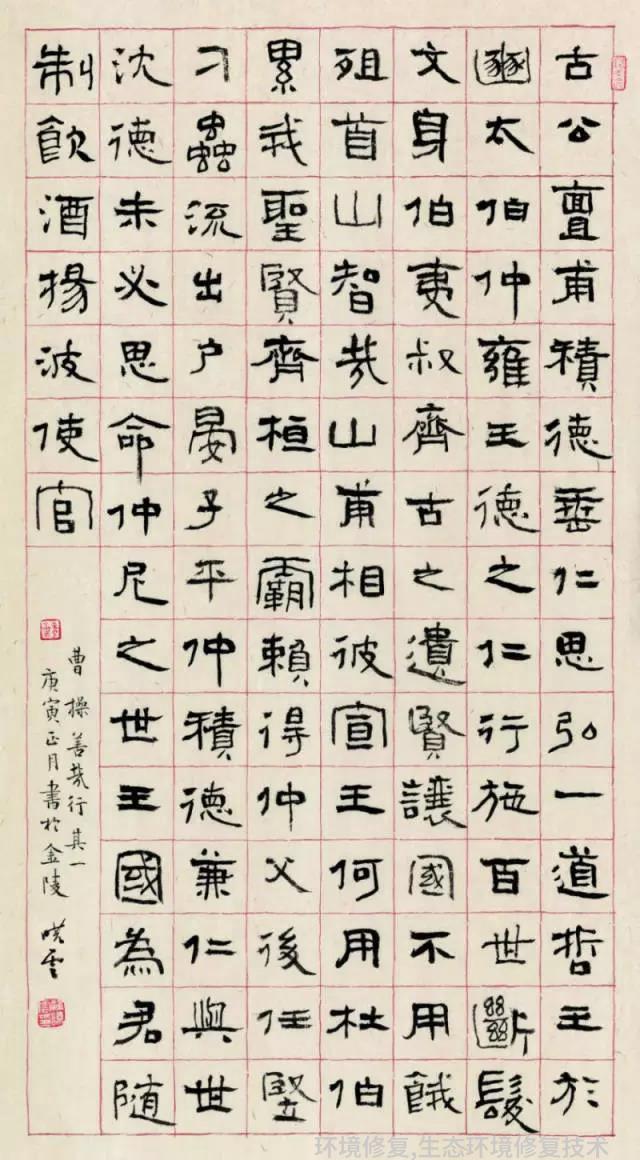 古公亶甫積德垂仁思弘一道哲王於
豳太伯仲雍王德之仁行施百世斷髮
文身伯夷叔齊古之遺賢讓國不用餓
殂首山智哉山甫相彼宣王何用杜伯
累我聖賢齊桓之霸賴得仲父後任竪
刁蟲流出户晏子平仲積德兼仁與世
沈德未必思命仲尼之世王國為君随
制飲酒揚波使官
曹操善哉行其一
庚寅正月書於金陵
环境修复,生态环境修复技术